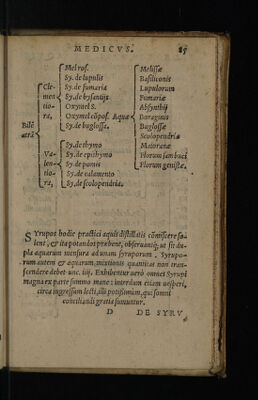 MEDICVS. 25
Mel ros. Melissæ
Sy. de lupulis Basiliconis
Cle- Sy. de fumaria Lupulorum
men Sy. de bysantijs Fumariæ
tio- Oxymel S. Absynthij
ra, Oxymel cõpos. Aquæ Boraginis
Sy. de buglossa. Buglossæ
Bilẽ Scolopendriæ
atrã Sy. de thymo Maioranæ
Va- Sy. de epithymo Florum sambuci
len- Sy. de pomis Florum genistæ.
tio- Sy. de calamento
ra, Sy. de scolopendria.
SYrupos hodie practici aquis distillatis cõmiscere so-
lent, & ita potandos præbent, obseruantq; ut sit du-
pla aquarum mensura ad unam syruporum. Syrupo-
rum autem & aquarum, mixtionis quantitas non tran-
scendere debet unc. iiij. Exhibentur uerò omnes Syrupi
magna ex parte summo mane: interdum etiam uesperi,
circa ingressum lecti, illi potissimùm, qui somni
conciliandi gratia sumuntur.
D DE SYRV